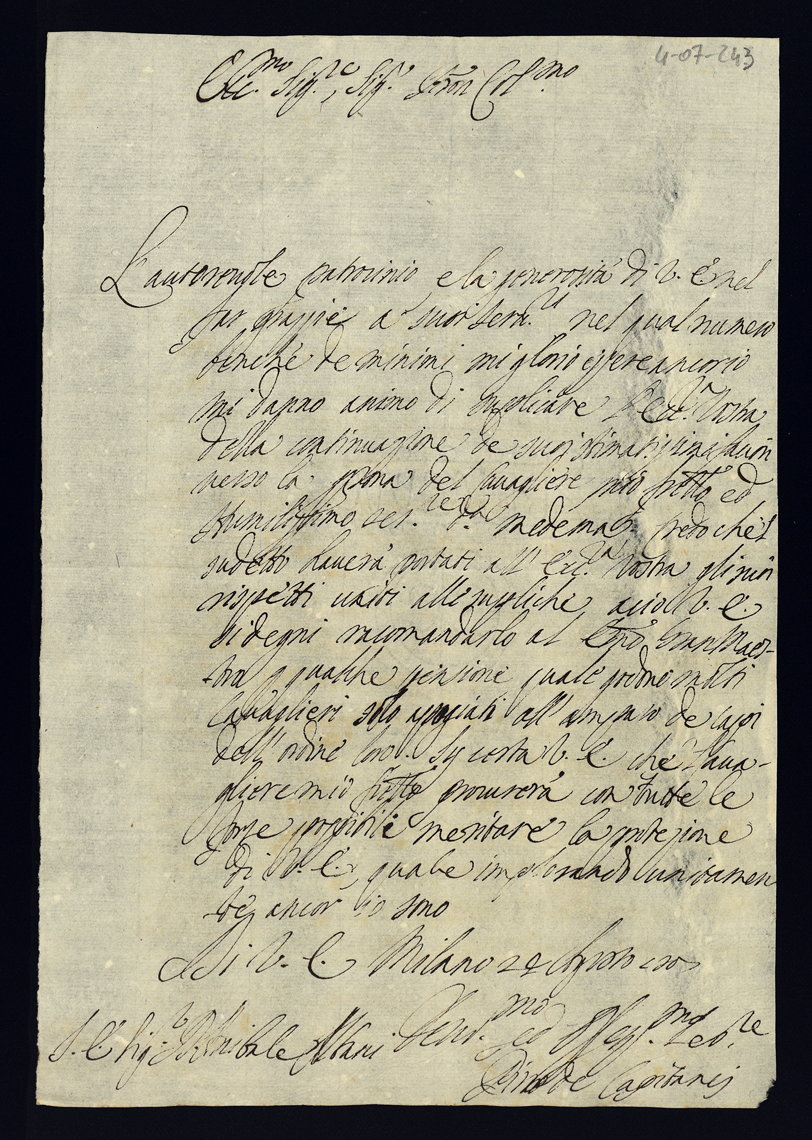 4-07-243
Ecc.mo Sig.re, Sig. Pron Col.mo
L'autorevole patrocinio, e la generosità di V. E. nel
far grazzie a suoi serv.ri nel qual numero
benche de minimi mi glorio essere ancor io
mi danno animo di suplicare l'Ecc.a Vostra
della continuazione de suoi stimatissimi favori
verso la del Cavagliere mio fratello ed
humilissimo ser.re medema. Credo che'l
sudetto haverà portati all'Ecc.za Vostra gli suoi
rispetti uniti alle supliche, acciò V. E.
si degni racomandarlo al Gran Maes-
tro p qualche pensione quale godono molti
Cavaglieri solo appogiati all' de capi
dell'ordine loro. Sij certa V. E. che'l Cava-
gliere mio fratello procurerà con tutte le
forze possibili meritare la protezione
di V. E., quale implorando unitamen
te ancor io sono
Di V. E. Milano Agosto
S. E. Sig. Annibale Albani Dev.mo ed Obl.mo Se.re
de Capitanei